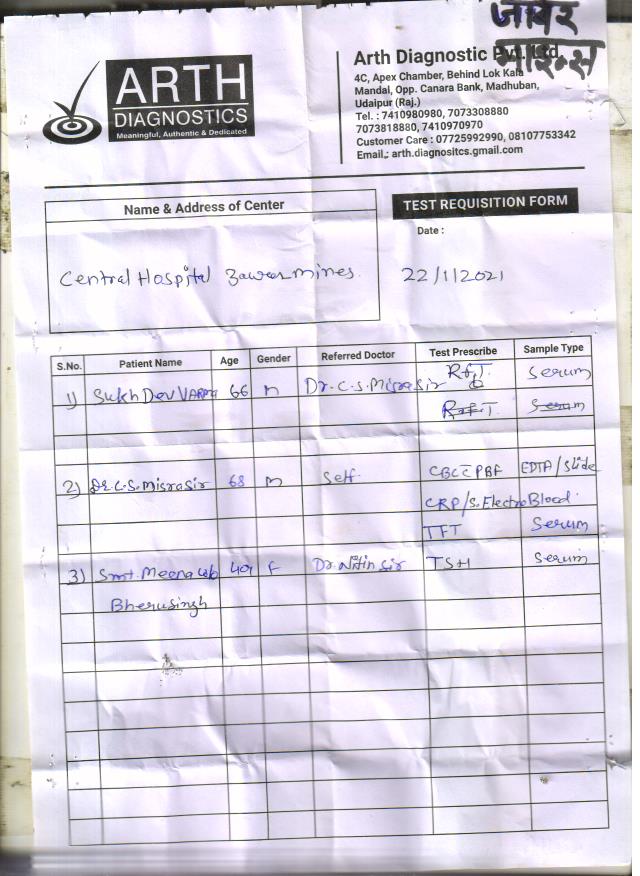 जावर
माइन्स
ARTH
DIAGNOSTICS
Meaningful, Authentic & Dedicated
Arth Diagnostic Pvt. Ltd.
4C, Apex Chamber, Behind Lok Kala
Mandal, Opp. Canara Bank, Madhuban,
Udaipur (Raj.)
Tel. : 7410980980, 7073308880
7073818880, 7410970970
Customer Care : 07725992990, 08107753342
Email.: arth.diagnositcs.gmail.com
Name & Address of Center
TEST REQUISITION FORM
Date :
Central Hospital Zawar mines.
22/1/2021
S.No. Patient Name Age Gender Referred Doctor Test Prescribe Sample Type
1) Sukh Dev VARMA 66 M Dr. C.S. Misra sir RfT. Serum
RfT. Serum
2) Dr. C.S. Misra Sir 68 M Self CBC PBF EDTA/Slide
CRP/S. Electro Blood.
TFT Serum
3) Smt. Meena w/o F Dr. Nitin Sir TSH Serum
Bherusingh